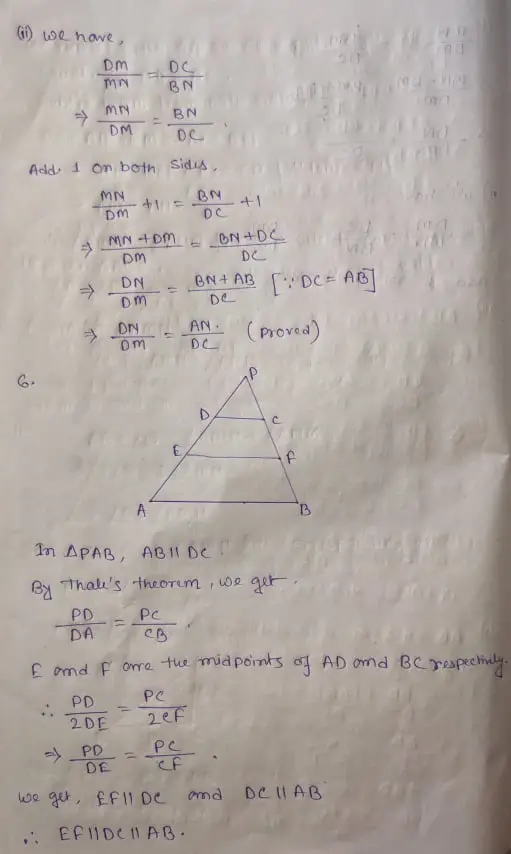 (ii) we have,
DM/MN = DC/BN
⇒ MN/DM = BN/DC.
Add 1 on both sides.
MN/DM + 1 = BN/DC + 1
⇒ MN + DM/DM = BN + DC/DC
⇒ DN/DM = BN + AB/DC [∵ DC = AB]
⇒ DN/DM = AN./DC (proved)
6.
P
D C
E F
A B
In ΔPAB, AB ∥ DC.
By Thale's theorem, we get.
PD/DA = PC/CB.
E and F are the midpoints of AD and BC respectively.
∴ PD/2DE = PC/2CF
⇒ PD/DE = PC/CF.
we get, EF ∥ DC and DC ∥ AB
∴ EF ∥ DC ∥ AB.